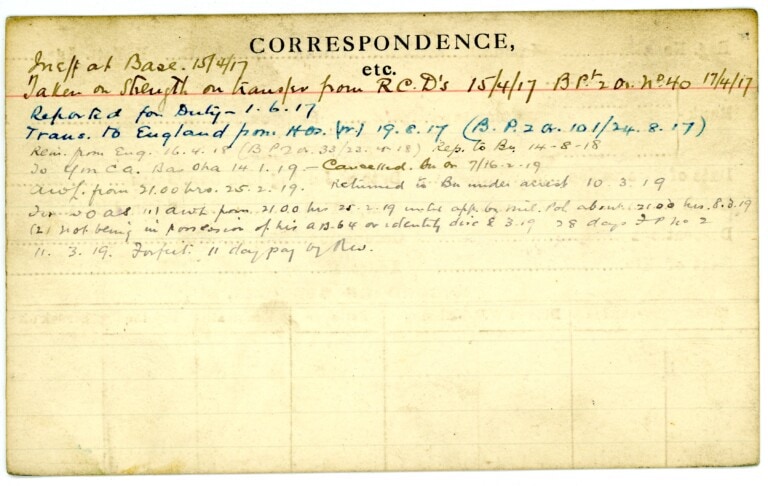 CORRESPONDENCE,
etc.
Ineff at Base. 15/4/17
Taken on Strength on transfer from R.C.D's 15/4/17 B Pt 2 Or. No 40 17/4/17
Reported for Duty - 1.6.17
Trans. to England from Hos. 19.8.17 (B.P.2 Or. 101/24.8.17)
from Eng. 16.4.18 (B P 2 Or. 33/22.4.18) Rep. to Bn 14-8-18
To 14.1.19 - Cancelled. on 7/16-2-19
AWL from 21.00 hrs. 25-2.19. Returned to Bn under arrest 10.3.19
(1) AWL from 21.00 hrs 25-2-19 until app. by Mil. Pol about 21.00 hrs. 8.3.19
(2) Not being in possession of his AB.64 or identity disc 8.3.19 28 days F P No 2
11.3.19. Forfeit 11 days pay by